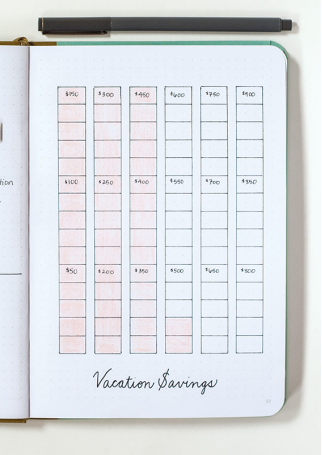 $150 $300 $450 $600 $750 $900
tion
$100 $250 $400 $550 $700 $850
$50 $200 $350 $500 $650 $800
Vacation $avings